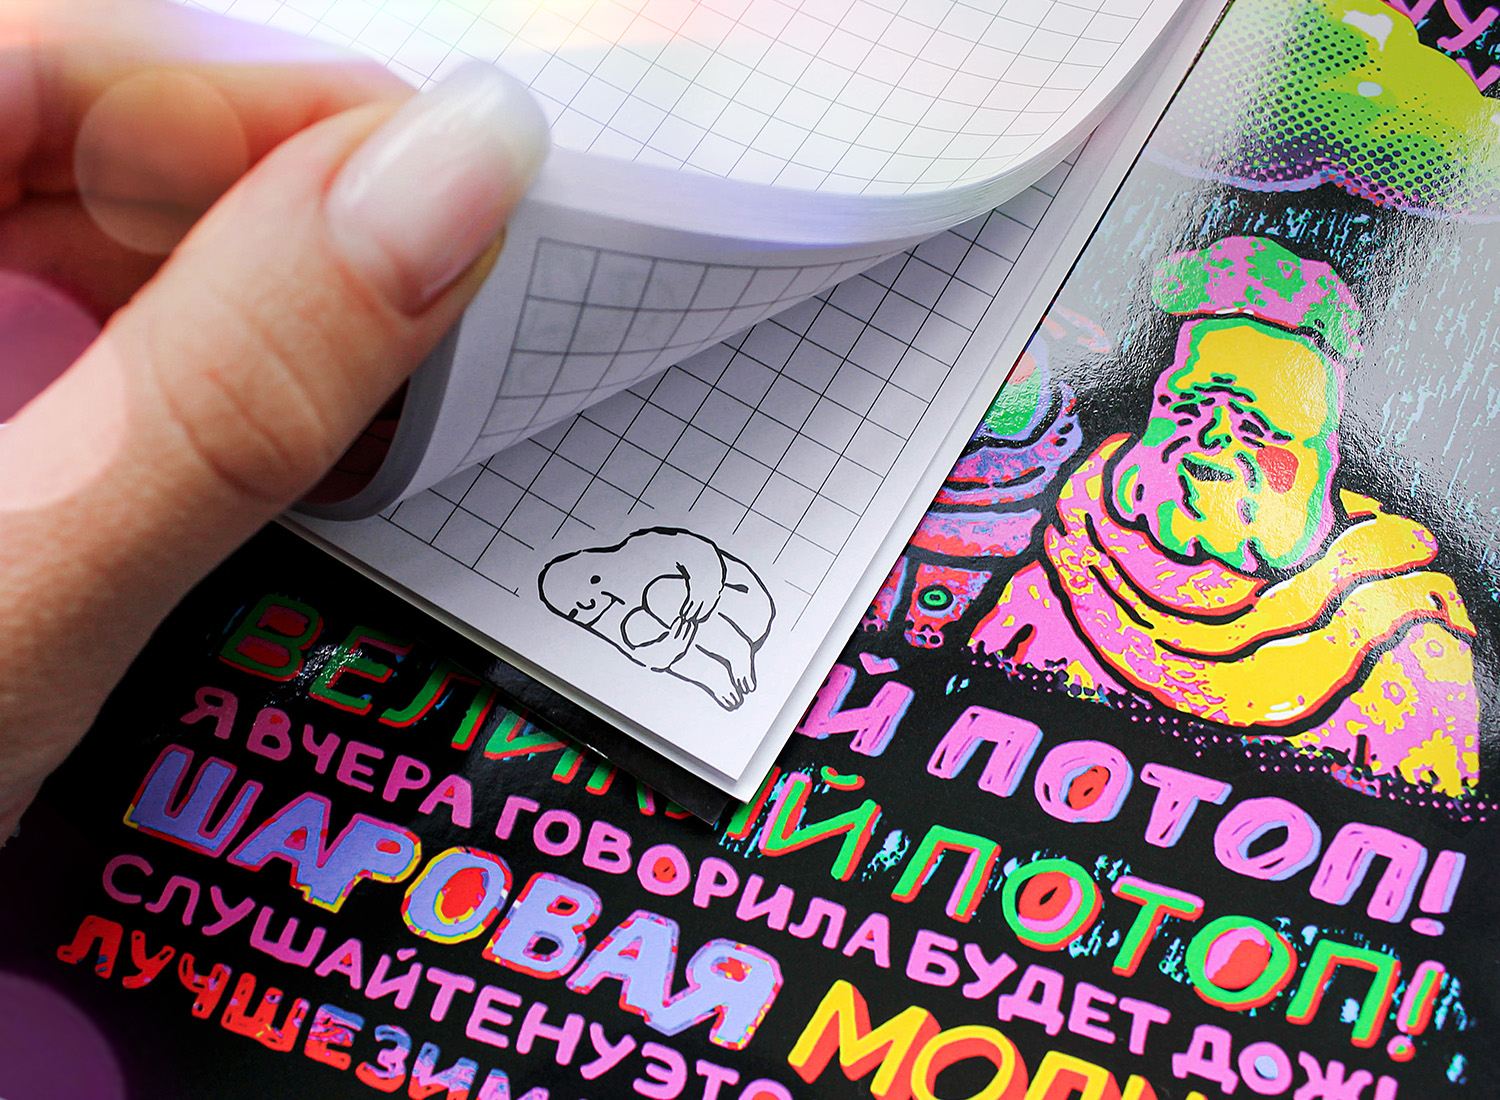 Й ПОТОП!
ВЕЛИКИЙ ПОТОП!
Я ВЧЕРА ГОВОРИЛА БУДЕТ ДОЖ
ШАРОВАЯ МОЛ
СЛУШАЙТЕ НУ ЭТО
ЛУЧШЕ ЗИМ